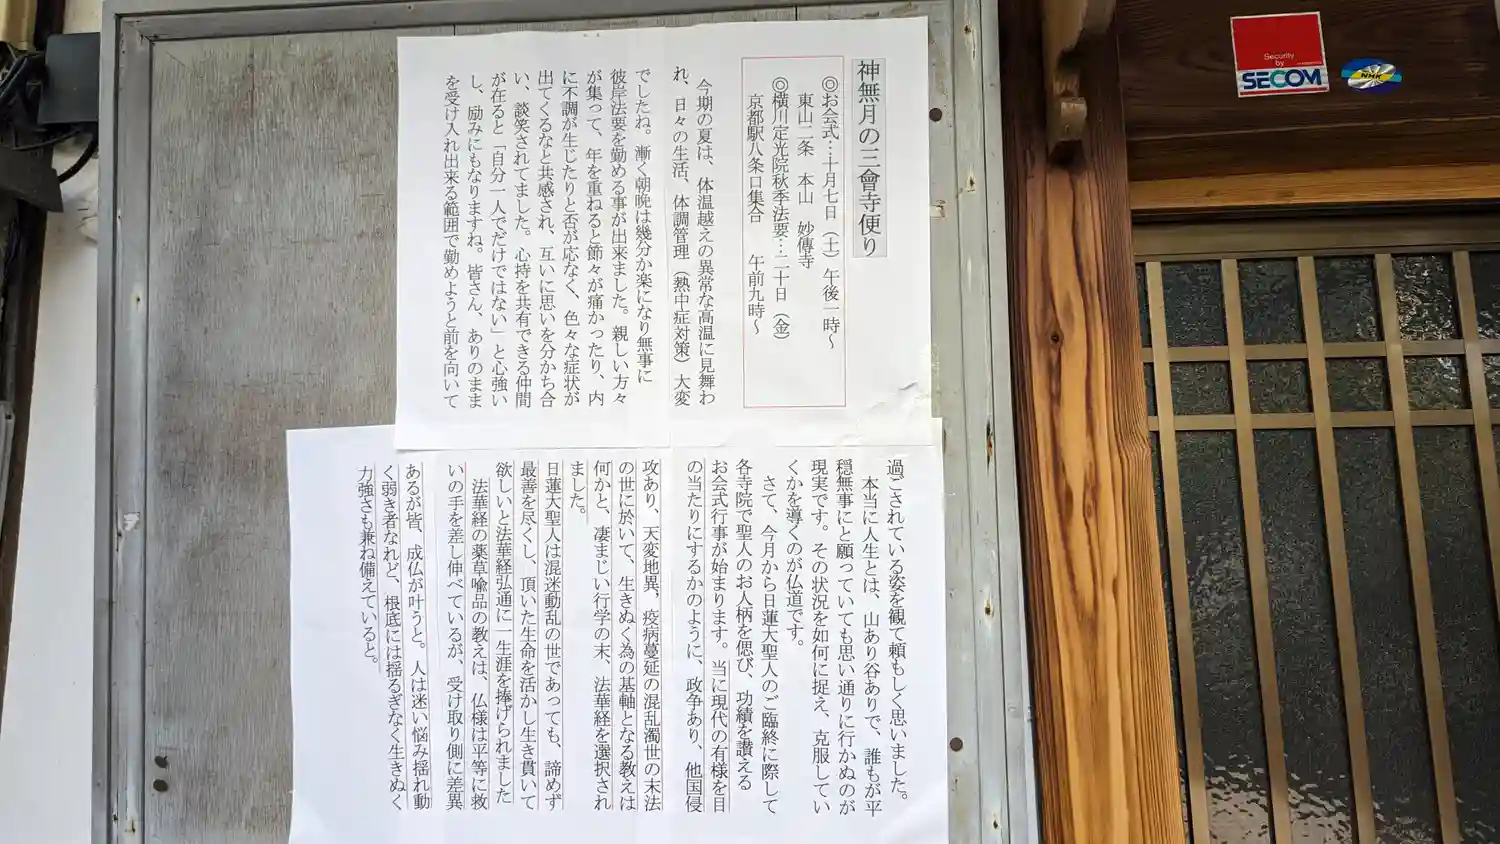 神無月の三會寺便り
◎お会式…十月七日（土）午後一時～
東山二条　本山　妙傳寺
◎横川定光院秋季法要…二十日（金）
京都駅八条口集合　午前九時～
今期の夏は、体温越えの異常な高温に見舞わ
れ、日々の生活、体調管理（熱中症対策）大変
でしたね。漸く朝晩は幾分か楽になり無事に
彼岸法要を勤める事が出来ました。親しい方々
が集って、年を重ねると節々が痛かったり、内
に不調が生じたりと否が応なく、色々な症状が
出てくるなと共感され、互いに思いを分かち合
い、談笑されてました。心持を共有できる仲間
が在ると「自分一人でだけではない」と心強い
し、励みにもなりますね。皆さん、ありのまま
を受け入れ出来る範囲で勤めようと前を向いて
過ごされている姿を観て頼もしく思いました。
本当に人生とは、山あり谷ありで、誰もが平
穏無事にと願っていても思い通りに行かぬのが
現実です。その状況を如何に捉え、克服してい
くかを導くのが仏道です。
さて、今月から日蓮大聖人のご臨終に際して
各寺院で聖人のお人柄を偲び、功績を讃える
お会式行事が始まります。当に現代の有様を目
の当たりにするかのように、政争あり、他国侵
攻あり、天変地異、疫病蔓延の混乱濁世の末法
の世に於いて、生きぬく為の基軸となる教えは
何かと、凄まじい行学の末、法華経を選択され
ました。
日蓮大聖人は混迷動乱の世であっても、諦めず
最善を尽くし、頂いた生命を活かし生き貫いて
欲しいと法華経弘通に一生涯を捧げられました
法華経の薬草喩品の教えは、仏様は平等に救
いの手を差し伸べているが、受け取り側に差異
あるが皆、成仏が叶うと。人は迷い悩み揺れ動
く弱き者なれど、根底には揺るぎなく生きぬく
力強さも兼ね備えていると。
Security
by
SECOM
NMK